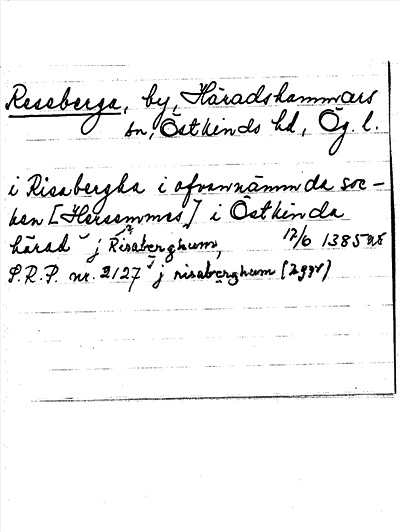 Reseberga, by, Häradshammars
sn, Östkinds hd, Ög. l.
i Risabergha i ofvannämnda soc-
ken [Hersammas] i Östkinda
härad j Risaberghum, 17/6 1385
S.R.P. nr. 2127 j risaberghum